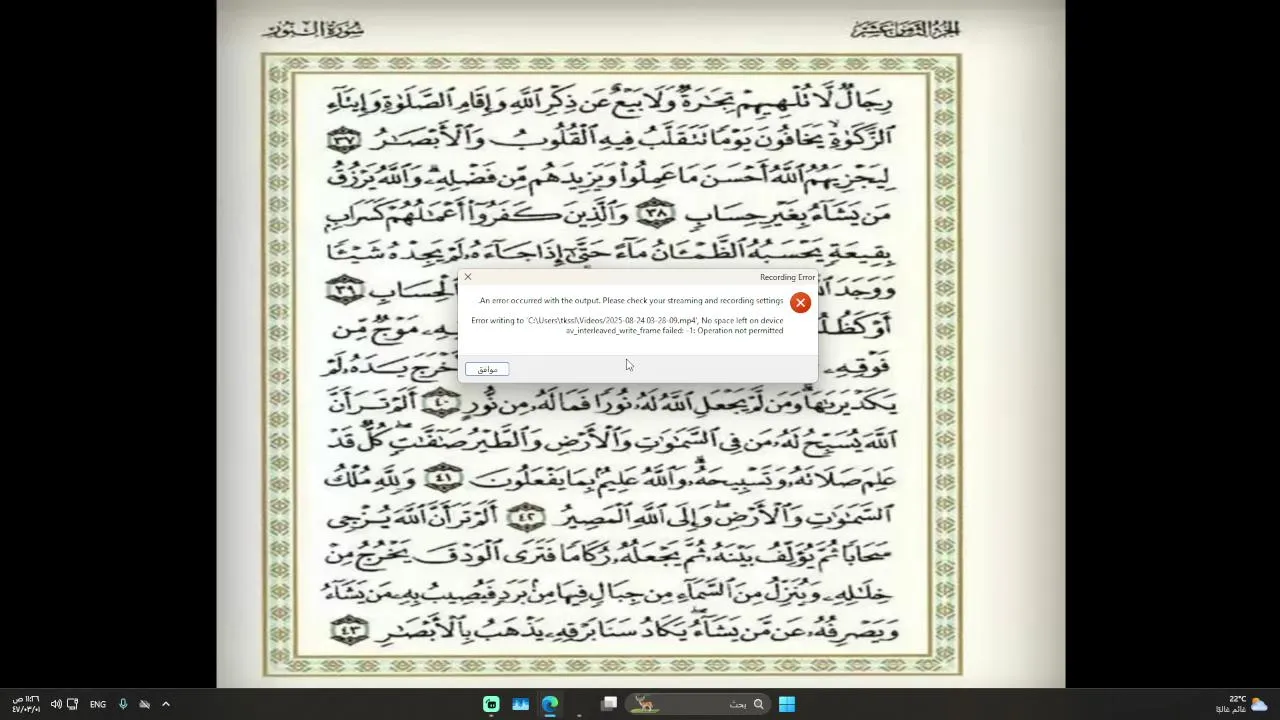 الجزء الثامن عشر
سورة النور
رِجَالٌ لَّا تُلْهِيهِمْ تِجَٰرَةٌ وَلَا بَيْعٌ عَن ذِكْرِ ٱللَّهِ وَإِقَامِ ٱلصَّلَوٰةِ وَإِيتَآءِ
ٱلزَّكَوٰةِ يَخَافُونَ يَوْمًا تَتَقَلَّبُ فِيهِ ٱلْقُلُوبُ وَٱلْأَبْصَٰرُ ٣٧
لِيَجْزِيَهُمُ ٱللَّهُ أَحْسَنَ مَا عَمِلُوا۟ وَيَزِيدَهُم مِّن فَضْلِهِۦ وَٱللَّهُ يَرْزُقُ
مَن يَشَآءُ بِغَيْرِ حِسَابٍ ٣٨ وَٱلَّذِينَ كَفَرُوٓا۟ أَعْمَٰلُهُمْ كَسَرَابٍۭ
بِقِيعَةٍ يَحْسَبُهُ ٱلظَّمْـَٔانُ مَآءً حَتَّىٰٓ إِذَا جَآءَهُۥ لَمْ يَجِدْهُ شَيْـًٔا
وَوَجَدَ ٱلْحِسَابِ ٣٩
Recording Error
An error occurred with the output. Please check your streaming and recording settings.
Error writing to 'C:\Users\tkssl\Videos/2025-08-24 03-28-09.mp4', No space left on device
av_interleaved_write_frame failed: -1: Operation not permitted
موافق
مَوْجٌ مِّن
فَوْقِهِۦ أَخْرَجَ يَدَهُۥ لَمْ
يَكَدْ يَرَىٰهَا وَمَن لَّمْ يَجْعَلِ ٱللَّهُ لَهُۥ نُورًا فَمَا لَهُۥ مِن نُّورٍ ٤٠ أَلَمْ تَرَ أَنَّ
ٱللَّهَ يُسَبِّحُ لَهُۥ مَن فِى ٱلسَّمَٰوَٰتِ وَٱلْأَرْضِ وَٱلطَّيْرُ صَٰٓفَّٰتٍ كُلٌّ قَدْ
عَلِمَ صَلَاتَهُۥ وَتَسْبِيحَهُۥ وَٱللَّهُ عَلِيمٌۢ بِمَا يَفْعَلُونَ ٤١ وَلِلَّهِ مُلْكُ
ٱلسَّمَٰوَٰتِ وَٱلْأَرْضِ وَإِلَى ٱللَّهِ ٱلْمَصِيرُ ٤٢ أَلَمْ تَرَ أَنَّ ٱللَّهَ يُزْجِى
سَحَابًا ثُمَّ يُؤَلِّفُ بَيْنَهُۥ ثُمَّ يَجْعَلُهُۥ رُكَامًا فَتَرَى ٱلْوَدْقَ يَخْرُجُ مِنْ
خِلَٰلِهِۦ وَيُنَزِّلُ مِنَ ٱلسَّمَآءِ مِن جِبَالٍ فِيهَا مِنۢ بَرَدٍ فَيُصِيبُ بِهِۦ مَن يَشَآءُ
وَيَصْرِفُهُۥ عَن مَّن يَشَآءُ يَكَادُ سَنَا بَرْقِهِۦ يَذْهَبُ بِٱلْأَبْصَٰرِ ٤٣
22°C
غائم غالبًا
بحث
ENG
١١:٢٦ ص
٤٧/٠٣/٠١